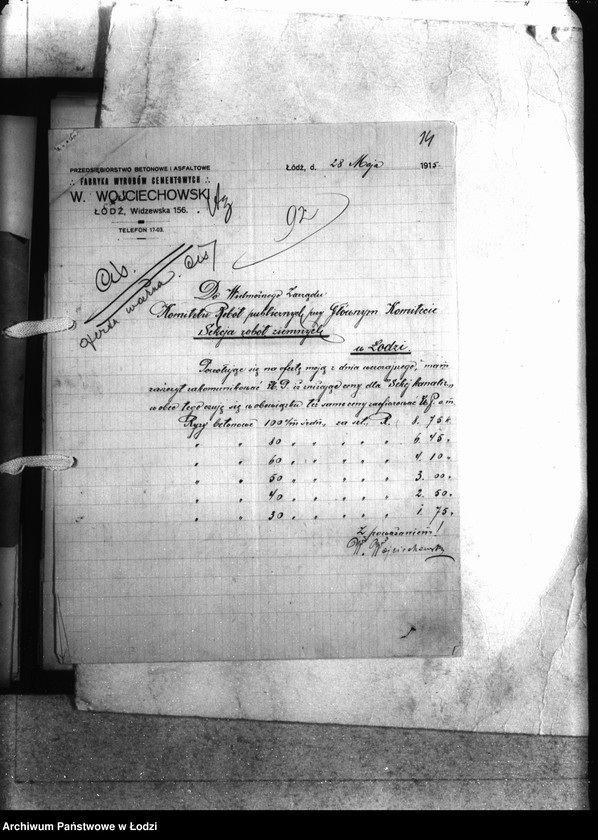 14
PRZEDSIĘBIORSTWO BETONOWE I ASFALTOWE
FABRYKA WYROBÓW CEMENTOWYCH
W. WOJCIECHOWSKI
ŁÓDŹ, Widzewska 156.
TELEFON 17-03.
Łódź, d. 28 Maja 1915
92
Do Wielmożnego Zarządu
Komitetu Robót publicznych przy Głównym Komitecie
Sekcja robót ziemnych
w Łodzi.
Powołując się na ofertę moją z dnia wczorajszego, mam
zaszczyt zakomunikować W.P. iż zniżając ceny dla
wobec tego czuję się w obowiązku też same ceny zaofiarować W.P. a m.
Rury betonowe 100 c/m średn. za szt. R. 8. 75.
" " 80 " " " " " 6. 45.
" " 60 " " " " " 4. 10.
" " 50 " " " " " 3. 00.
" " 40 " " " " " 2. 50.
" " 30 " " " " " 1. 75.
Z poważaniem!
W. Wojciechowski
Archiwum Państwowe w Łodzi